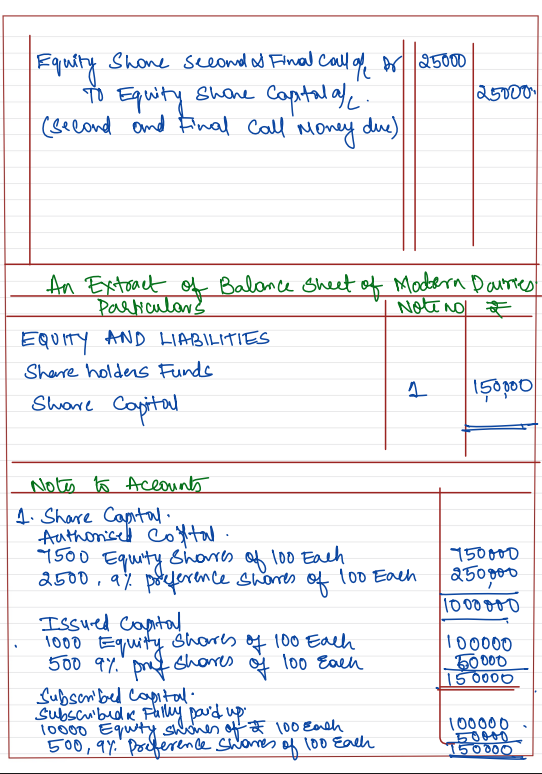 Equity Share Second & Final Call a/c Dr 25000
To Equity Share Capital a/c. 25000
(Second and Final Call Money due)
An Extract of Balance Sheet of Modern Dairies
Particulars Note no ₹
EQUITY AND LIABILITIES
Share holders Funds
Share Capital 1 150,000
Notes to Accounts
1. Share Capital.
Authorised Capital.
7500 Equity Shares of 100 Each 750000
2500, 9% preference Shares of 100 Each 250,000
1000000
Issued Capital
1000 Equity Shares of 100 Each 100000
500 9% pref Shares of 100 Each 50000
150000
Subscribed Capital.
Subscribed & Fully paid up.
10000 Equity shares of ₹ 100 Each 100000
500, 9% Preference Shares of 100 Each 50000
150000